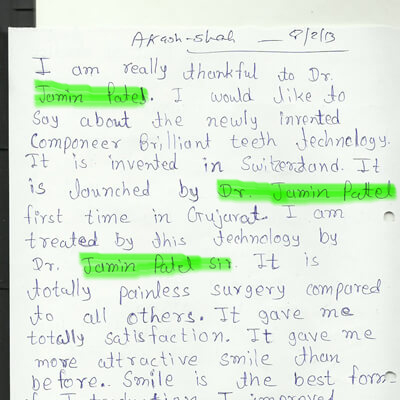 Akash Shah — 8/2/13
I am really thankful to Dr.
Jamin Patel. I would like to
say about the newly invented
componeer brilliant teeth technology.
It is invented in Switzerland. It
is launched by Dr. Jamin Patel
first time in Gujarat. I am
treated by this technology by
Dr. Jamin Patel sir. It is
totally painless surgery compared
to all others. It gave me
totally satisfaction. It gave me
more attractive smile than
before. Smile is the best form
I improved